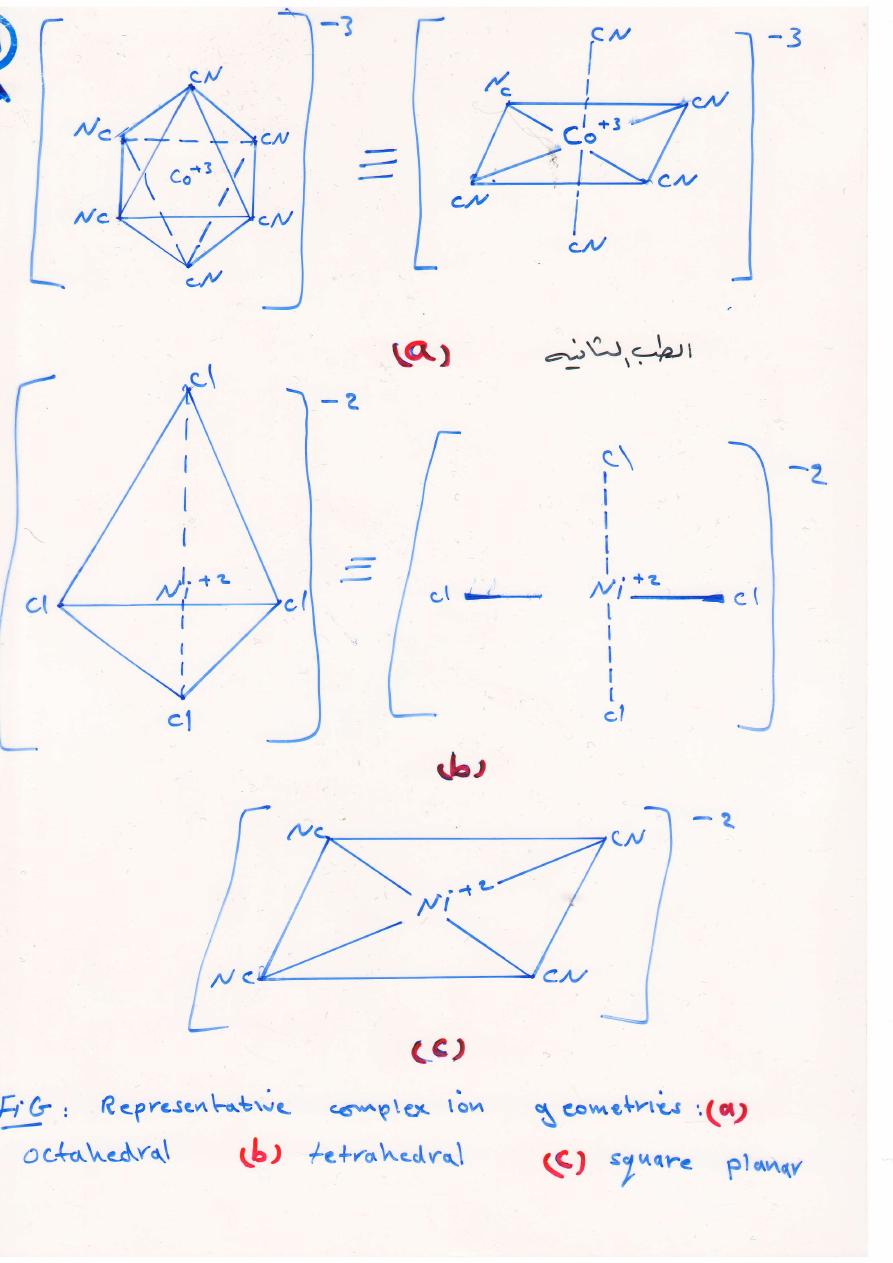 -3
-3
CN
CN
NC
CN
Co+3
NC
CN
CN
≡
Nc
CN
Co+3
CN
CN
CN
(a)
الطب الثانيه
Cl
-2
Cl
Ni+2
Cl
Cl
≡
-2
Cl
Cl
Ni+2
Cl
Cl
(b)
-2
NC
CN
Ni+2
NC
CN
(c)
FiG: Representative complex ion geometries: (a)
octahedral (b) tetrahedral (c) square planar